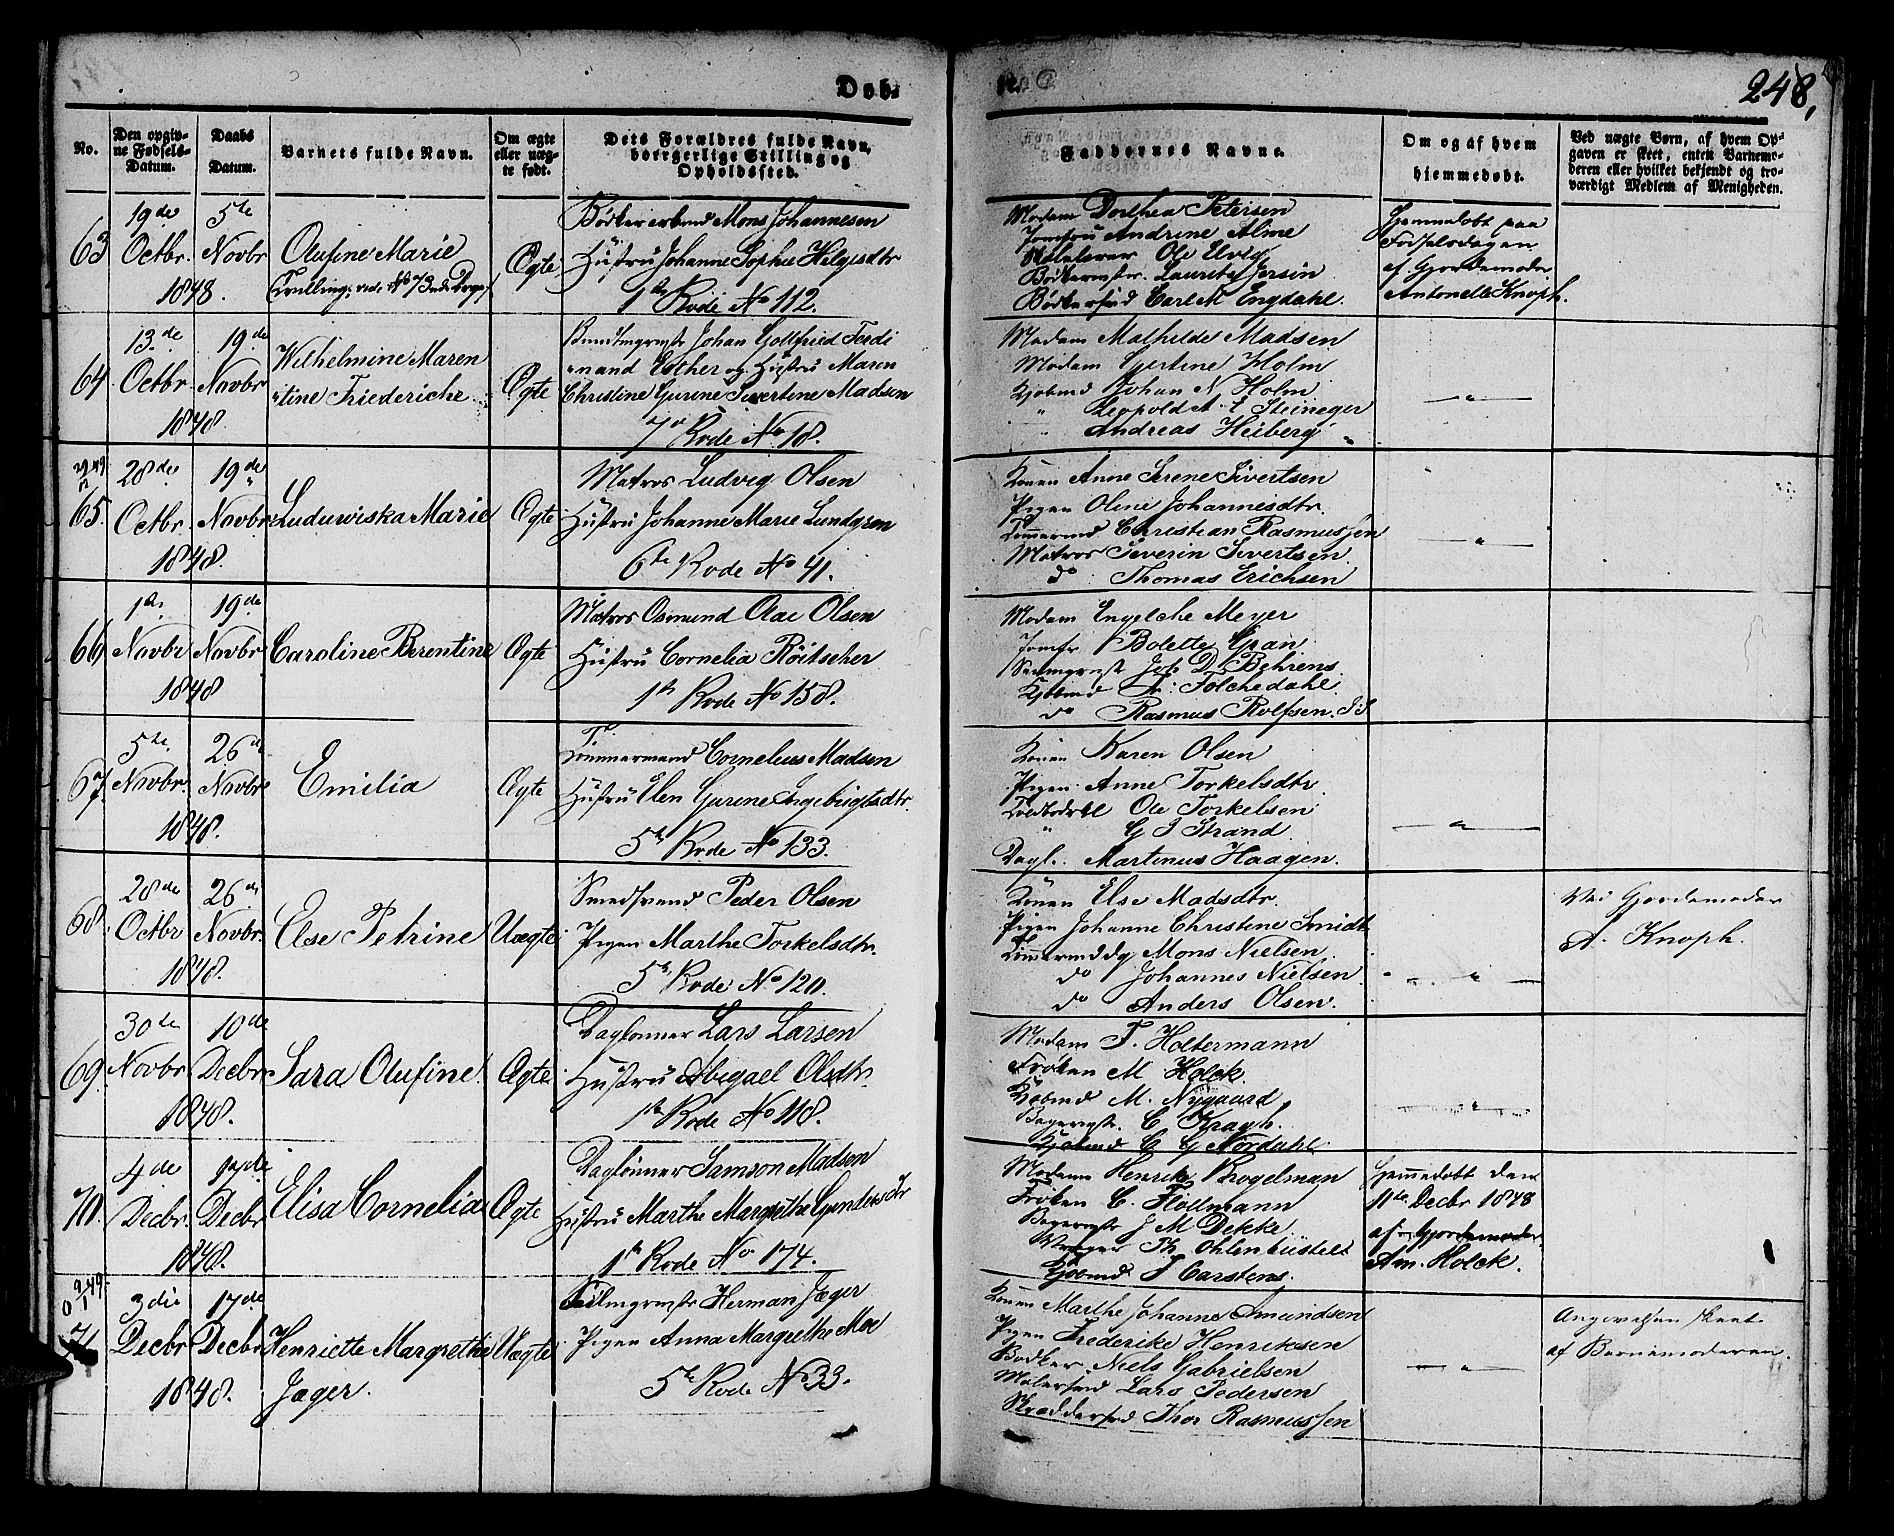 Døbte
248,
No.
Den opgiv-
ne Fødsels-
Datum.
Daabs
Datum.
Barnets fulde Navn.
Om ægte
eller uæg-
te født.
Dets Forældres fulde Navn,
borgerlige Stilling og
Opholdssted.
Faddernes Navne.
Om og af hvem
hjemmedøbt.
Ved uægte Børn, af hvem Op-
gaven er skeet, enten Barnemo-
deren eller hvilket bekjendt og tro-
værdigt Medlem af Menigheden.
63
19de
Octbr.
1848.
5te
Novbr
Olufine Marie
Tvilling
Ægte
Mons Johannesen
Hustru Johanne Sophie Helgesdtr
1ste Rode No 112.
Madam Dorthea Petersen
Jomfru Andrine Alme
Ole Elvig
Bødkermstr. Lauritz Jersin
Bødkersvd Carl M Engdahl.
Hjemmedøbt paa
Fødselsdagen
af Gjordemoder
Antonette Knoph.
64
13de
Octbr
1848.
19de
Novbr
Wilhelmine Maren
"tine Friederiche
Ægte
Johan Gottfried Ferdi
"nand Escher og Hustru Maren
Christine Gurine Sivertine Madsen
7de Rode No 18.
Madam Mathilde Madsen
Madam Gjertine Holm
Kjøbmd Johan N Holm
" Leopold A. E Steineger
" Andreas Heiberg
65.
28de
Octbr
1848.
19de
Novbr
Luduwiska Marie
Ægte
Matros Ludvig Olsen
Hustru Johanne Marie Lundgren
6te Rode No 41.
Konen Anne Serene Sivertsen
Pigen Oline Johannesdtr.
Tømmermd Christian Rasmussen
Matros Severin Sivertsen
do Thomas Erichsen
66
1ste
Novbr
1848
19de
Novbr
Caroline Berentine
Ægte
Matros Osmund Aae Olsen
Hustru Cornelia Röitscher
1ste Rode No 158.
Madam Engelche Meyer
Jomfr Bolette Gran
Joh D. Behrens
Kjøbmd A. Folchedahl.
do Rasmus Rolfsen.
67.
5te
Novbr.
1848.
26de
Novbr
Emilia
Ægte
Tømmermand Cornelius Madsen
Hustru Elen Gurine Ingebrigtsdtr.
5te Rode No 133.
Konen Karen Olsen
Pigen Anne Torkelsdtr.
Ole Torkelsen
" G J Strand
Dagl. Martinus Haagen.
68.
28de
Octbr
1848
26de
Novbr.
Else Petrine
Uægte
Smedsvend Peder Olsen
Pigen Marthe Torkelsdtr.
5te Rode No 120.
Konen Else Madsdtr.
Pigen Johanne Christene Smidt
Mons Nielsen
do Johannes Nielsen
do Anders Olsen.
Ved Gjordemoder
A. Knoph.
69.
30te
Novbr
1848.
10de
Decbr
Sara Olufine.
Ægte
Dagløнner Lars Larsen
Hustru Abigael Olsdtr.
1ste Rode No 118.
Madam F. Holtermann
Frøken M Holck
Kjøbmd M. Nygaard
Bagermstr. C Kragh.
Kjøbmd C G Nordahl
70.
4de
Decbr.
1848.
17de
Decbr
Elisa Cornelia
Ægte
Dagløнner Samson Madsen
Hustru Marthe Margrethe
1ste Rode No 174.
Madam Henrik Krogelman
Frøken C. Flottmann
Bagermstr J M Dekke
Th. Ohlenbüstel
Kjøbmd J Carstens.
Hjemmedøbt den
11te Decbr 1848
af Gjordemoder
Am. Holck.
71
3die
Decbr
1848.
17de
Decbr.
Henriette Margrethe
Jæger.
Uægte
Herman Jæger
Pigen Anna Margrethe Moe
5te Rode No 33.
Konen Marthe Johanne Amundsen
Pigen Frederike Henriksen
Bødker Niels Gabrielsen
Malersvd Lars Pedersen
Skræddersvd Thor Rasmussen
Angivelsen skeet
af Barnemoderen.